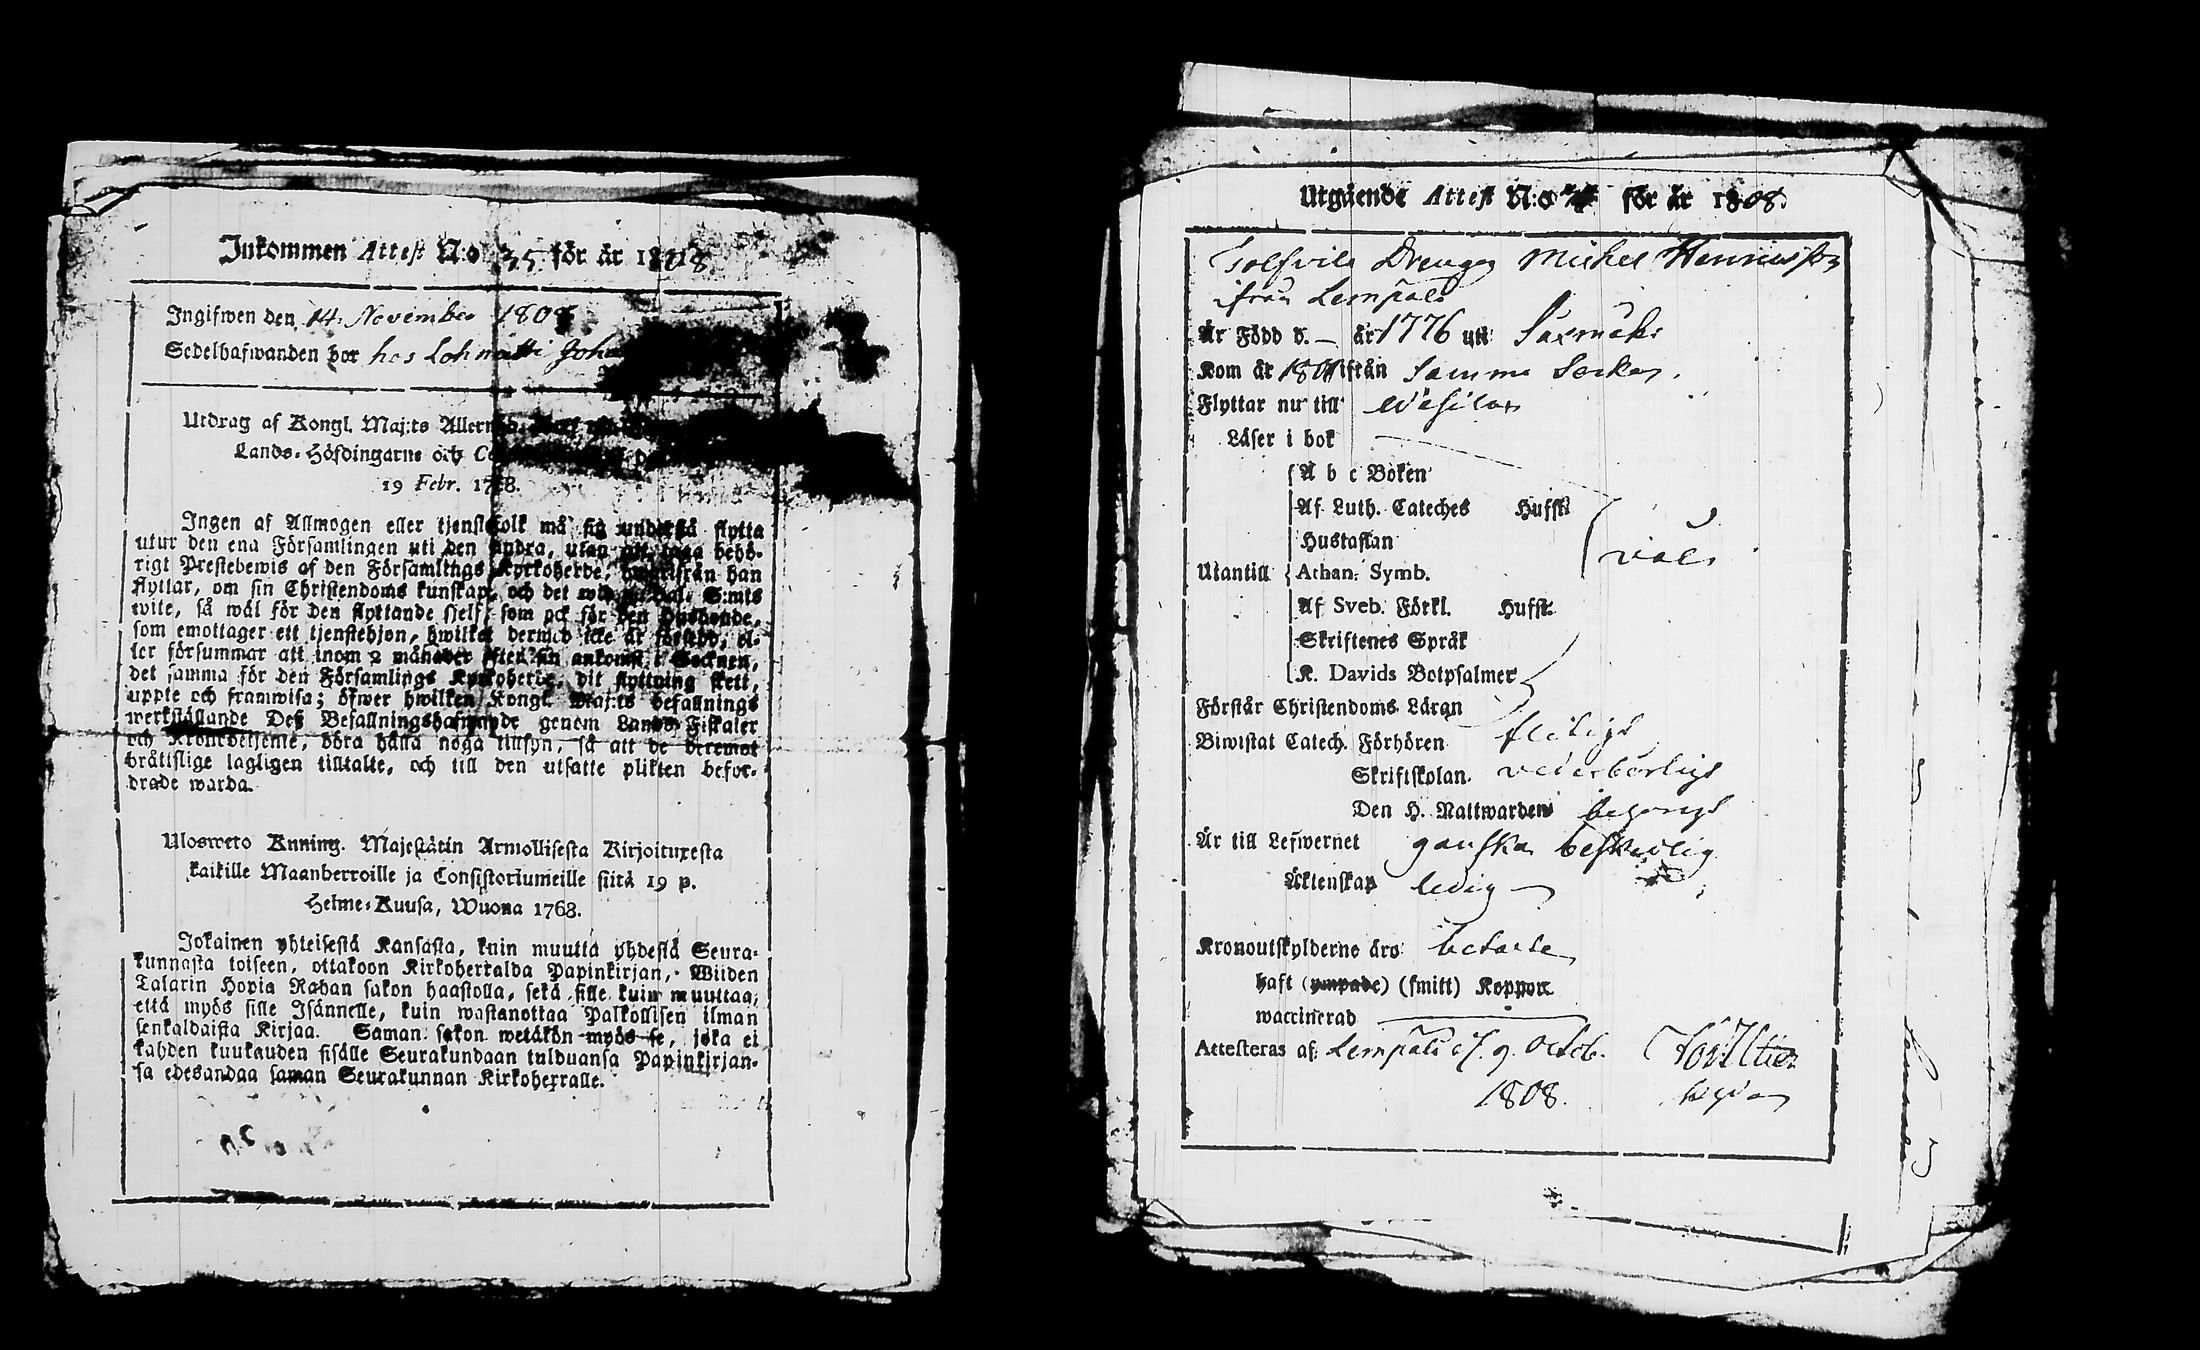 Inkommen Attest N:o 35 för år 18
Ingifwen den 14 November 1808
Sedelhafwanden bor hos Lohnatti Joh
Utdrag af Kongl. Maj:ts Allern
Lands-Höfdingarne och
19 Febr. 1768.
Ingen af Allmogen eller tjenstefolk må sig understå flytta
utur den ena Församlingen uti den andra, utan att taga behö-
rigt Prestebewis af den Församlings Kyrkoherde, hwarifrån han
flyttar, om sin Christendoms kunskap, och det wid Dal. S:mts
wite, så wäl för den flyttande sjelf, som ock för den Husbonde,
som emottager ett tjenstehjon, hwilket dermed icke är försedd, el-
ler försummar att inom 2 månader efter sin ankomst i Socknen,
det samma för den Församlings Kyrkoherde, dit flyttning skett,
uppte och framwisa; öfwer hwilken Kongl. Maj:ts befallnings
werkställande Deß Befallningshafwande genom Lands Fiskaler
och Kronobetjente, böra hålla noga tillsyn, så att de deremot
bråtislige lagligen tilltalte, och till den utsatte plikten befor-
drade warda.
Ulosweto Kuning. Majestätin Armollisesta Kirjoituxesta
kaikille Maanherroille ja Consistoriumeille siitä 19 p.
Helme-Kuusa, Wuona 1768.
Jokainen yhteisestä Kansasta, kuin muutta yhdestä Seura-
kunnasta toiseen, ottakoon Kirkoherralda Papinkirjan, Wiiden
Talarin Hopia Rahan sakon haastolla, sekä sille kuin muuttaa,
että myös sille Isännelle, kuin wastanottaa Palkollisen ilman
senkaldaista Kirjaa. Saman sakon wetäkön myös se, joka ei
kahden kuukauden sisälle Seurakundaan tulduansa Papinkirjan-
sa edesandaa saman Seurakunnan Kirkoherralle.
Utgående Attest N:o för år 1808.
Drengen Michel Henricsson
ifrån Lempälä
Är Född d. — år 1776 uti Säxmäki
Kom år 180 ifrån Samma Socken.
Flyttar nu till Wesilax
Läser i bok
A b c Boken
Af Luth. Cateches Hufst:
Hustaflan
väl
Utantill Athan. Symb.
Af Sveb. Förkl. Hufst:
Skriftenes Språk
K. Davids Botpsalmer
Förstår Christendoms Läran
Biwistat Catech. Förhören flitigt
Skriftskolan. vederbörligt
Den H. Nattwarden begangit
Är till Lefwernet ganska beskedlig
Äktenskap ledig
Kronoutskylderne äro betalte
haft (ympade) (smitt) Koppor
waccinerad
Attesteras af: Lempälä d. 9. Octob.
1808.